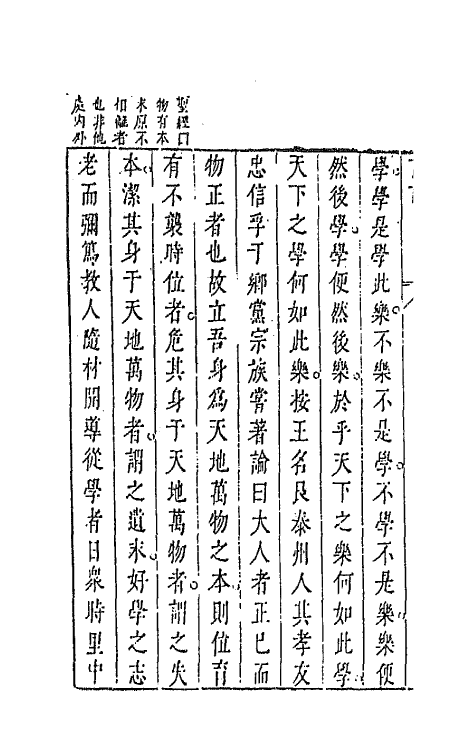 聖經曰
物有本
末原不
相離者
也非他
處内外
學學是學此樂不樂不是學不學不是樂樂便
然後學學便然後樂於乎天下之樂何如此學
天下之學何如此樂按王名艮泰州人其孝友
忠信孚于鄉黨宗族嘗著論曰大人者正已而
物正者也故立吾身為天地萬物之本則位育
有不襲時位者危其身于天地萬物者謂之失
本潔其身于天地萬物者謂之遺末好學之志
老而彌篤教人隨材開導從學者日眾時里中